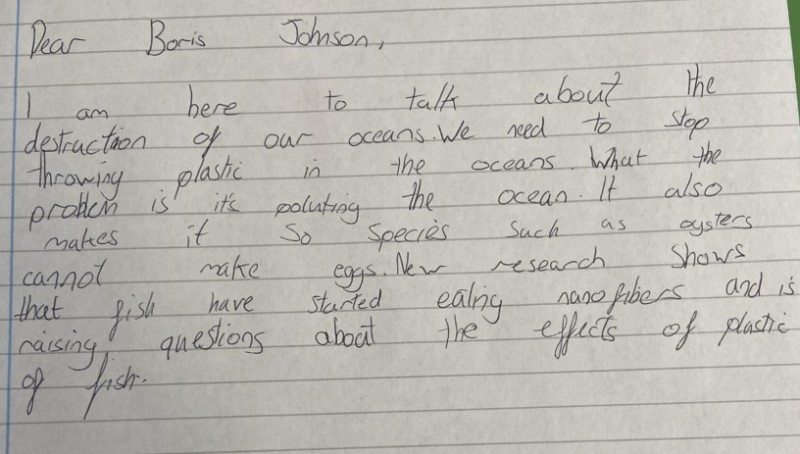 Dear Boris Johnson,
I am here to talk about the
destruction of our oceans. We need to stop
throwing plastic in the oceans. What the
problem is it's poluting the ocean. It also
makes it so species such as oysters
cannot make eggs. New research shows
that fish have started eating nanofibers and is
raising questions about the effects of plastic
of fish.